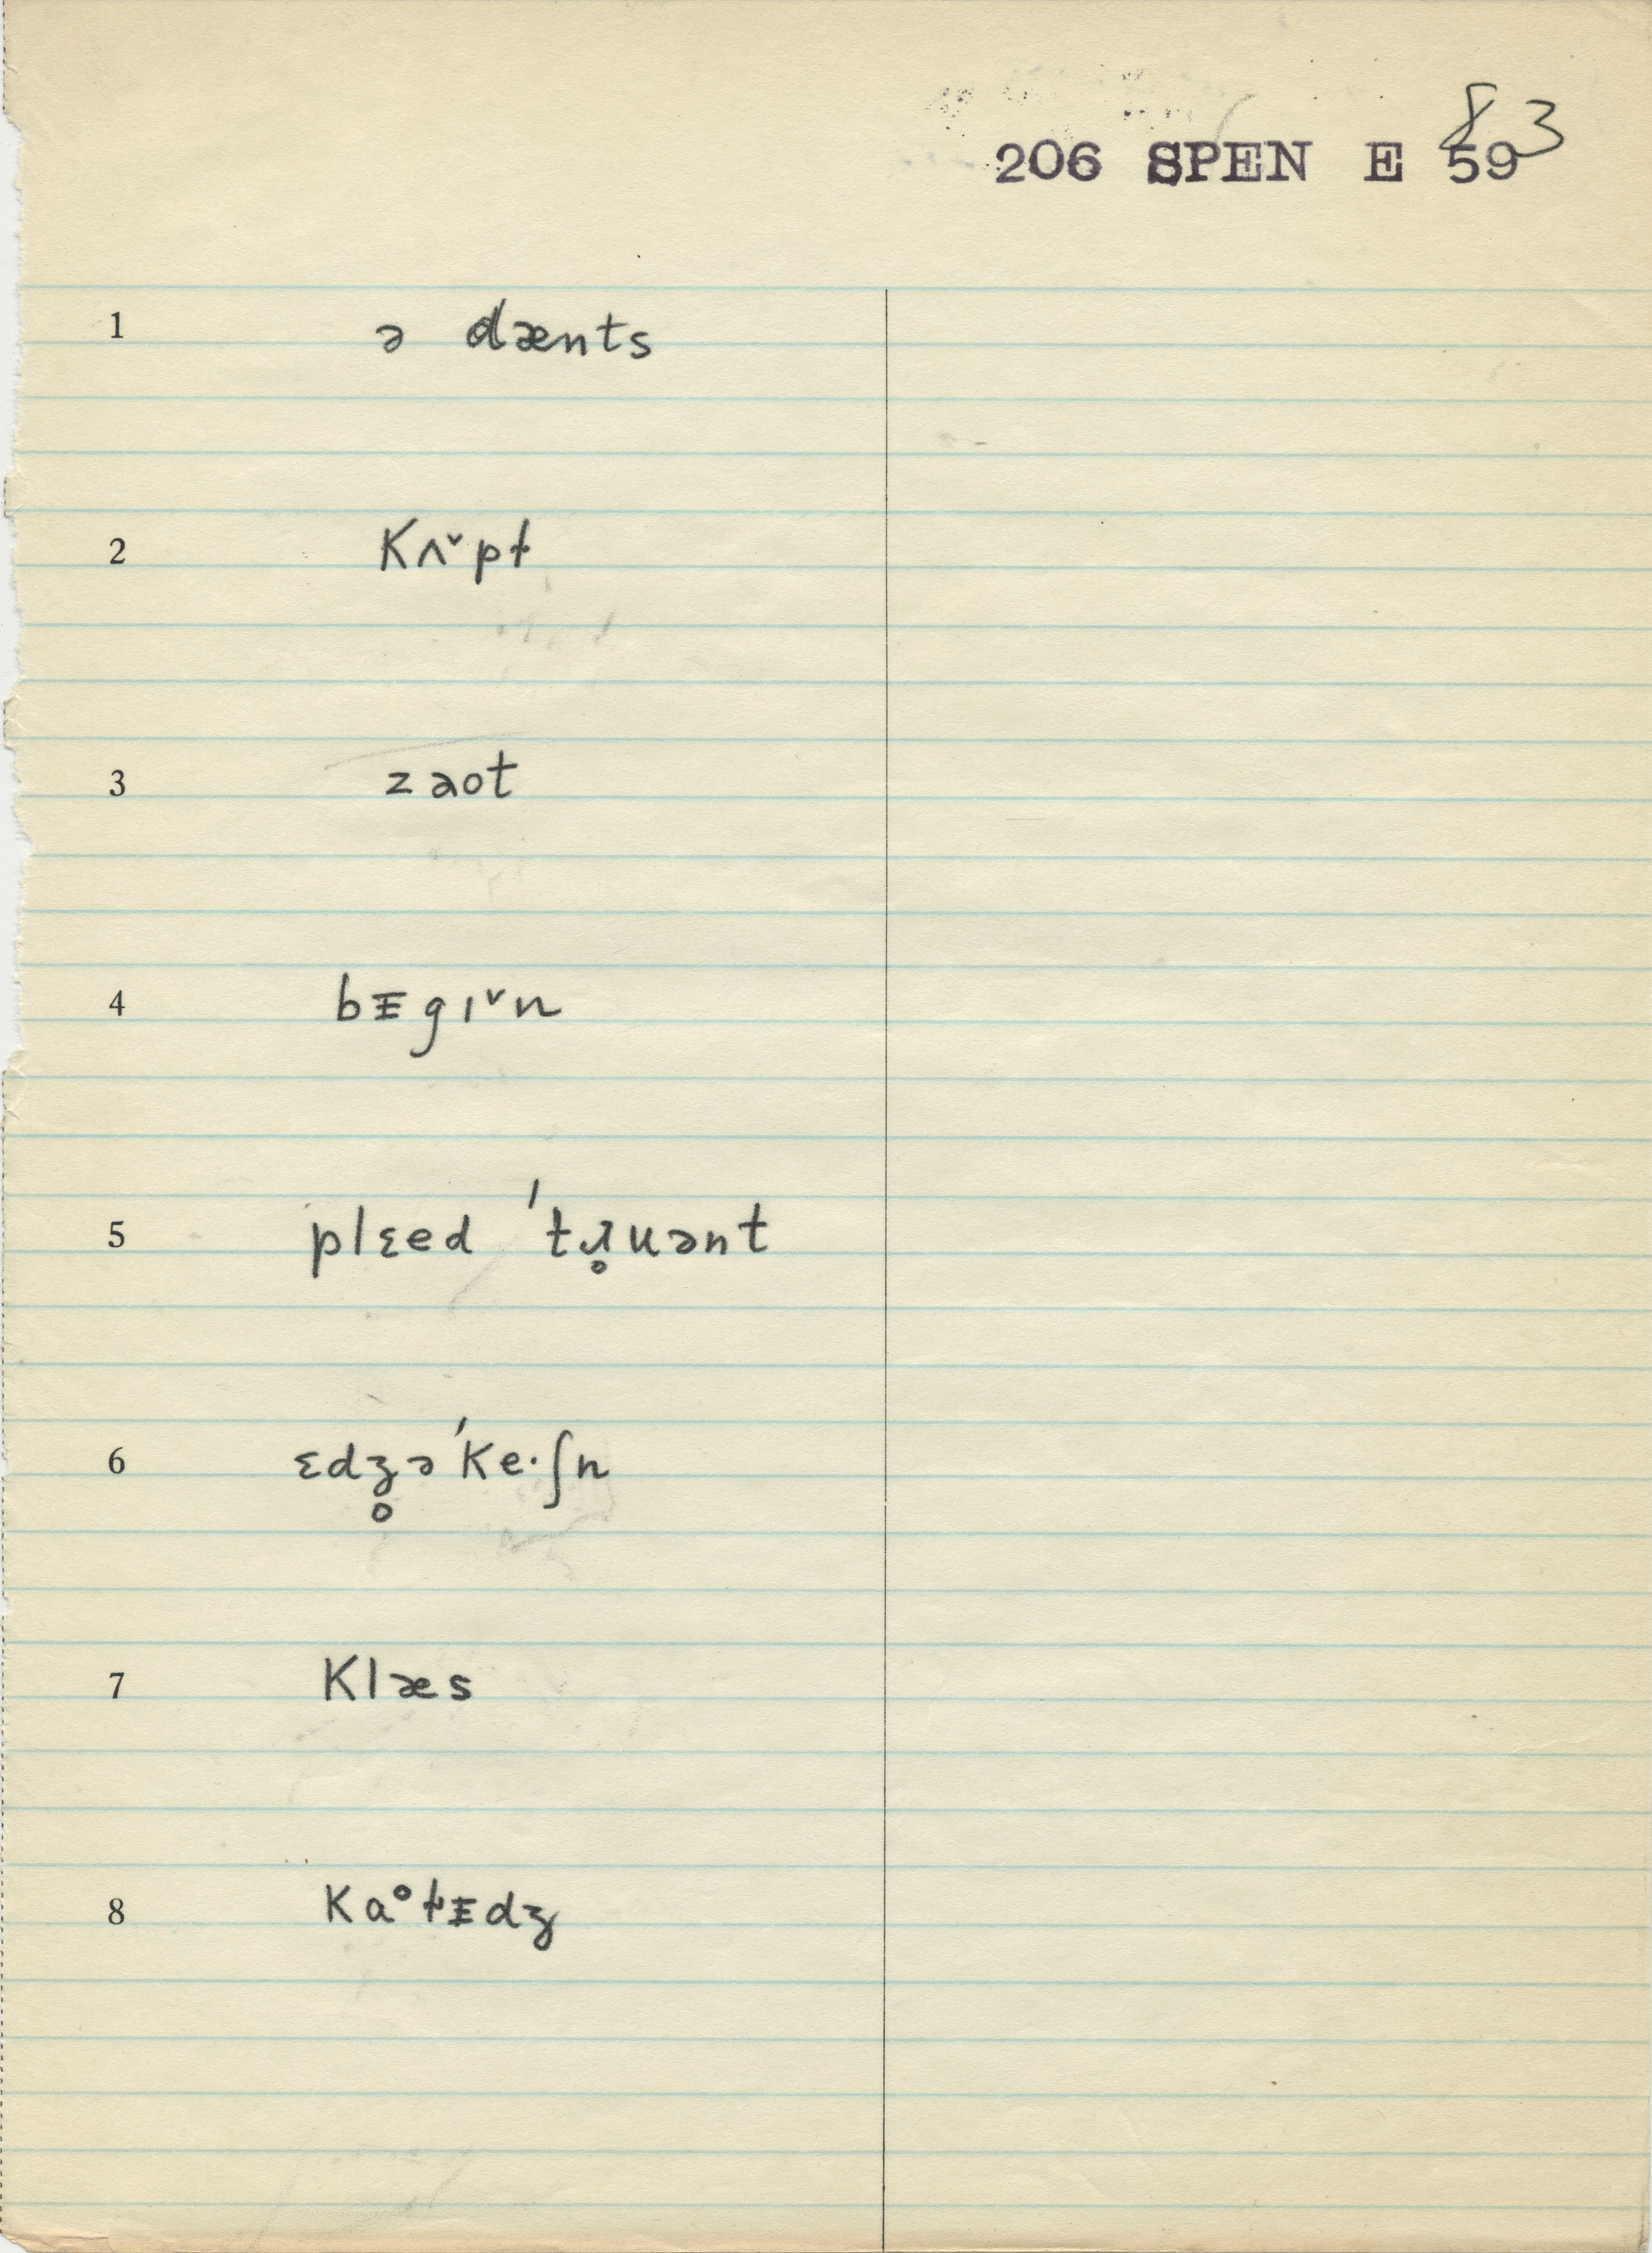 83
206 SPEN E 59
1 ə dænts
2 Kʌ˅pt̵
3 zaot
4 bᵻgɪ˅n
5 plɛed ˈtɹ̥uənt
6 ɛdʒ̥əˈKe·ʃn
7 Klæs
8 Kɑ°t̵ᵻdʒ